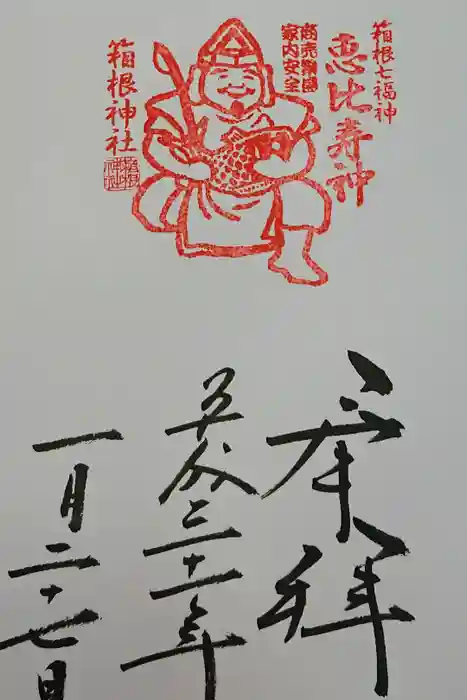 箱根七福神
恵比寿神
商売繁盛
家内安全
箱根神社
奉拝
平成三十一年
一月二十七日